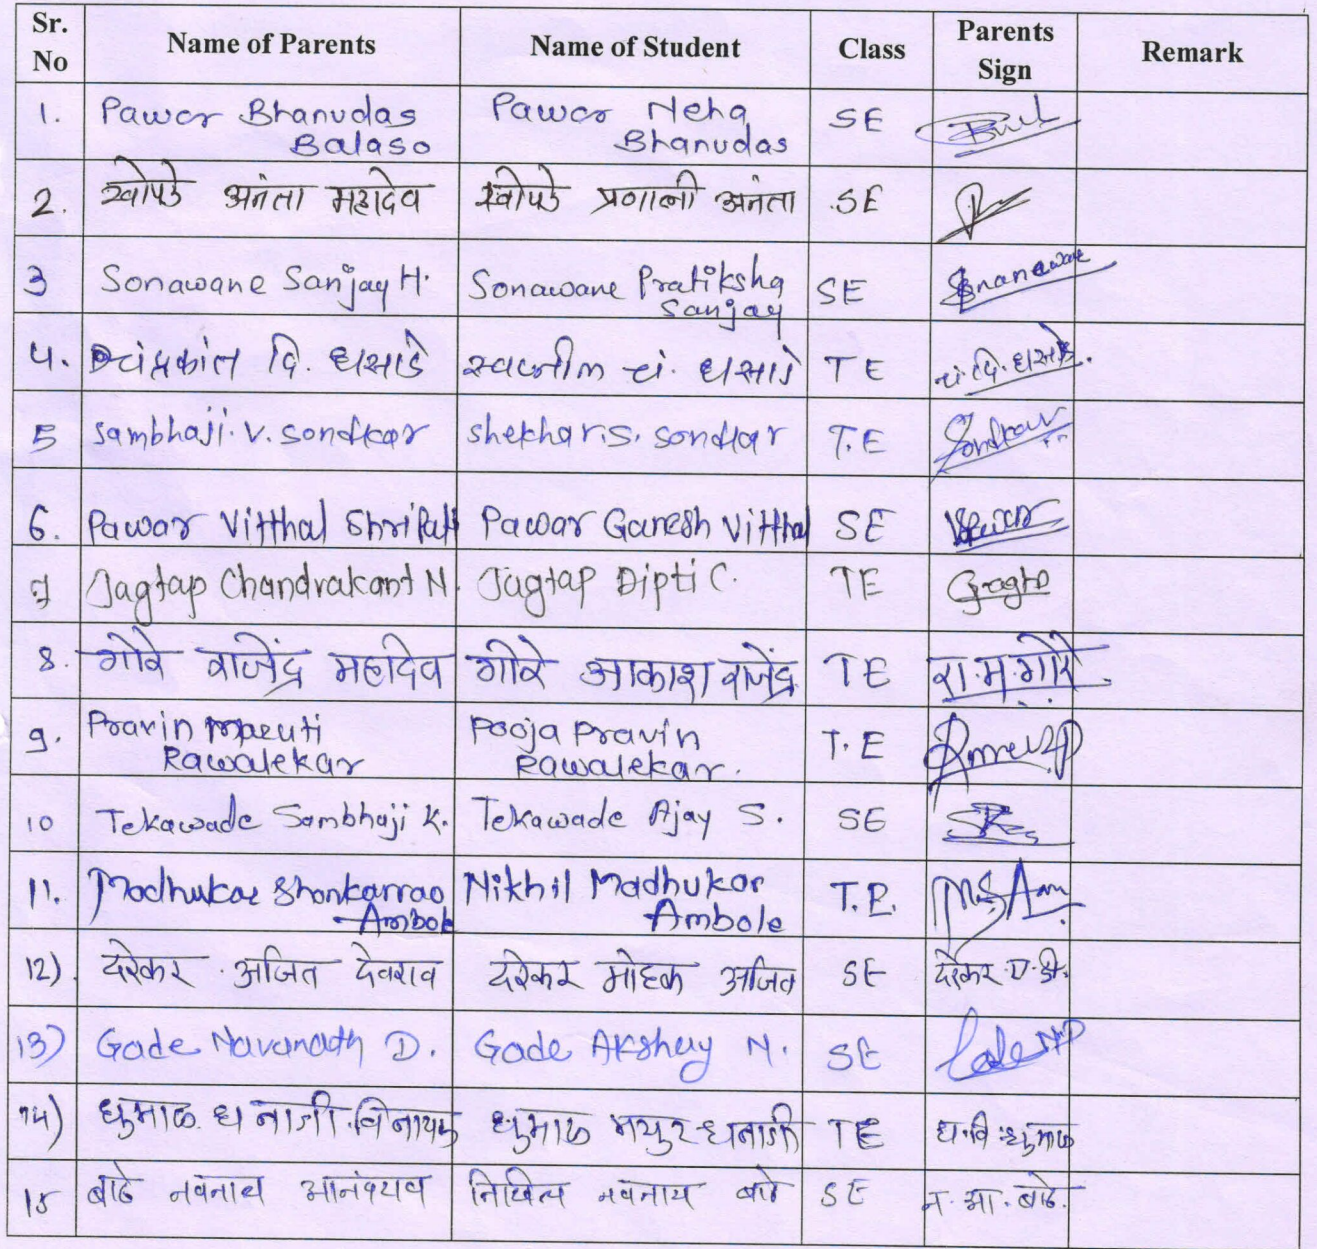 Sr. No Name of Parents Name of Student Class Parents Sign Remark
1. Pawar Bhanudas Balaso Pawar Neha Bhanudas SE
2. खोपडे अनंता महादेव खोपडे प्रणाली अनंता SE
3 Sonawane Sanjay H. Sonawane Pratiksha Sanjay SE Sonanaware
4. चंद्रकांत दि. धसाडे स्वप्नील चं. धसाडे TE चं. दि. धसाडे.
5 Sambhaji. V. Sondkar Shekhar. S. Sondkar T.E Sondkar
6. Pawar Vitthal Shripati Pawar Ganesh Vitthal SE
7 Jagtap Chandrakant N. Jagtap Dipti C. TE
8. गोरे राजेंद्र महादेव गोरे आकाश राजेंद्र TE रा. म. गोरे
9. Pravin Maruti Rawalekar Pooja Pravin Rawalekar. T.E
10 Tekawade Sambhaji K. Tekawade Ajay S. SE
11. Madhukar Shankarrao Ambole Nikhil Madhukar Ambole T.E.
12). दरेकर अजित देवराव दरेकर मोहक अजित SE
13) Gade Navanath D. Gade Akshay N. SE
14) धुमाळ धनाजी विनायक धुमाळ मयुर धनाजी TE ध. वि. धुमाळ
15 बाठे नवनाथ आनंदराव निखिल नवनाथ बाठे SE न. आ. बाठे.